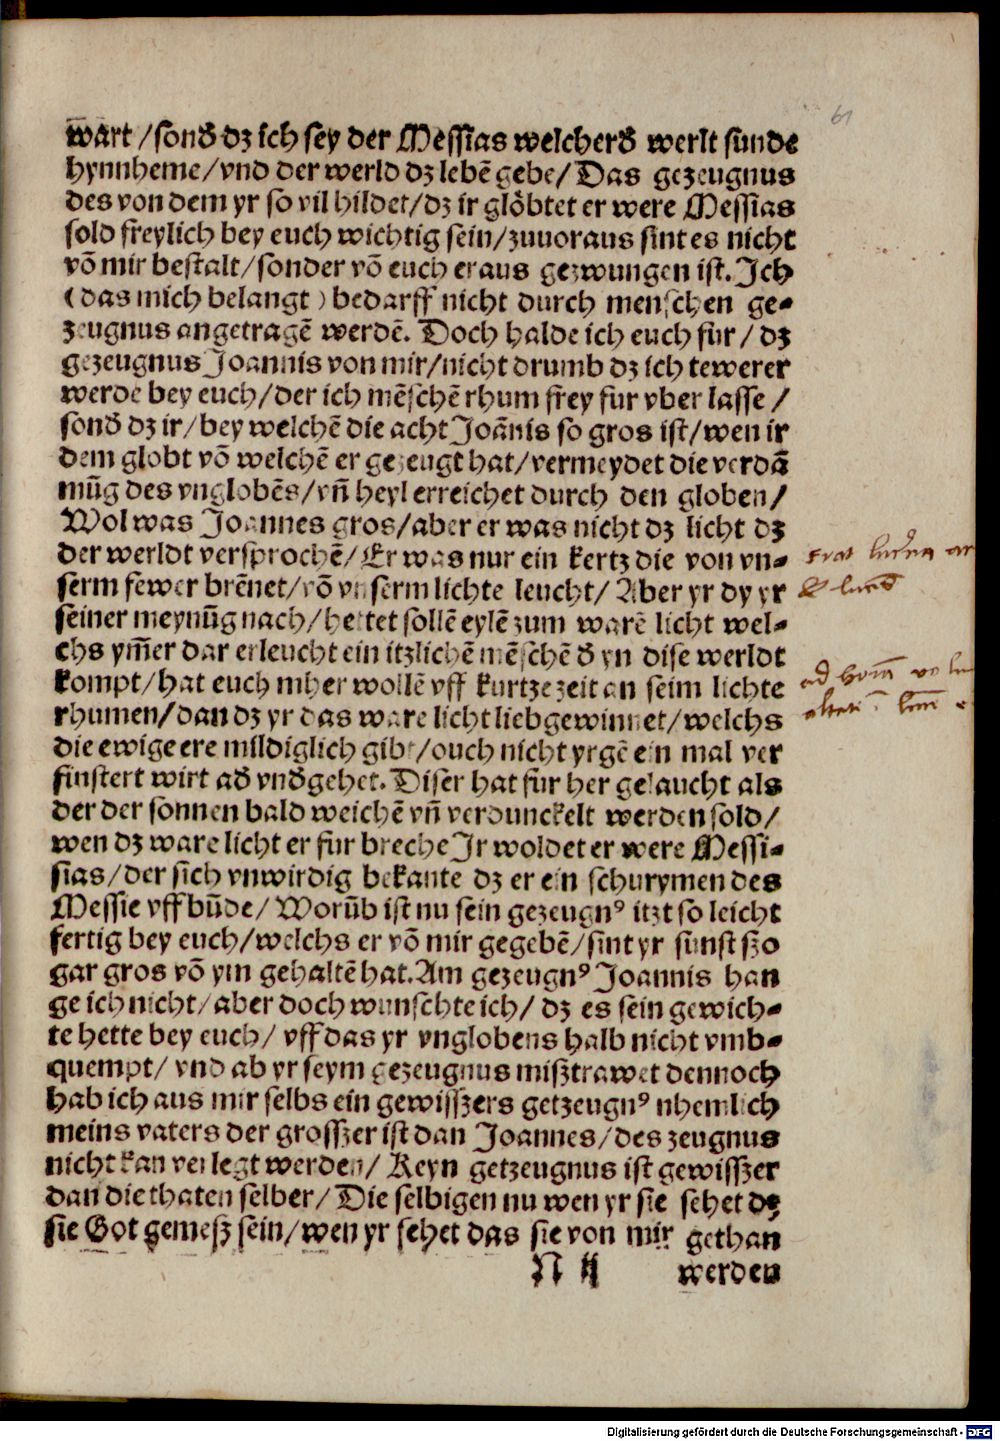 61
wart /sonđ dz ich sey der Messias welcherđ werlt sunde
hynnheme/vnd der werld dz lebē gebe/ Das gezeugnus
des von dem yr so vil hildet/dz ir glöbtet er were Messias
sold freylich bey euch wichtig sein/zuuoraus sint es nicht
vō mir bestalt/sonder vō euch eraus gezwungen ist. Ich
(das mich belangt) bedarff nicht durch menschen ge-
zeugnus angetragē werdē. Doch halde ich euch fur/ dz
gezeugnus Joannis von mir/nicht drumb dz ich tewerer
werde bey euch/der ich mēschē rhum frey fur vber lasse /
sonđ dz ir/bey welchē die acht Joānis so gros ist/wen ir
dem globt vō welchē er gezeugt hat/vermeydet die verdā
mūg des vnglobēs/vñ heyl erreichet durch den globen/
Wol was Joannes gros/aber er was nicht dz licht dz
der werldt versprochē/ Er was nur ein kertz die von vn-
serm fewer brēnet/vō vnserm lichte leucht/ Aber yr dy yr
seiner meynūg nach/hettet sollē eylē zum warē licht wel-
chs ym̄er dar erleucht ein itzlichē mēschē đ yn dise werldt
kompt/hat euch mher wollē vff kurtze zeit an seim lichte
rhumen/dan dz yr das ware licht liebgewinnet/welchs
die ewige ere mildiglich gibt/ouch nicht yrgē ein mal ver
finstert wirt ađ vnđgehet. Diser hat fur her gelaucht als
der der sonnen bald weichē vñ verdunckelt werden sold/
wen dz ware licht er fur breche Ir woldet er were Messi-
sias/der sich vnwirdig bekante dz er ein schurymen des
Messie vff būde/ Worūb ist nu sein gezeugnꝰ itzt so leicht
fertig bey euch/welchs er vō mir gegebē/sint yr sunst szo
gar gros vō ym gehaltē hat. Am gezeugnꝰ Joannis han
ge ich nicht/aber doch wunschte ich/ dz es sein gewich-
te hette bey euch/ vff das yr vnglobens halb nicht vmb-
quempt/ vnd ab yr seym gezeugnus misztrawet dennoch
hab ich aus mir selbs ein gewisszers getzeugnꝰ nhemlich
meins vaters der grosszer ist dan Joannes/des zeugnus
nicht kan verlegt werden/ Keyn getzeugnus ist gewisszer
dan die thaten selber/ Die selbigen nu wen yr sie sehet dz
sie Got gemesz sein/wen yr sehet das sie von mir gethan
N ij werden
Digitalisierung gefördert durch die Deutsche Forschungsgemeinschaft - DFG